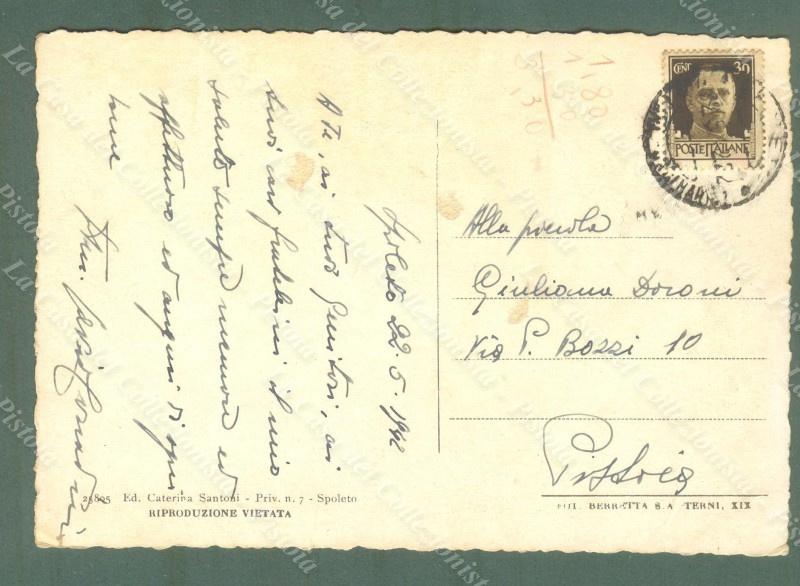 Spoleto 22.5.1942
A te, ai tuoi Genitori, ai
tuoi cari fratellini il mio
saluto sempre memore ed
affettuoso ed auguri di ogni
bene
Alla piccola
Giuliana Doroni
Via P. Bozzi 10
Pistoia
CENT 30
POSTE ITALIANE
1,80
25895 Ed. Caterina Santoni - Priv. n. 7 - Spoleto
RIPRODUZIONE VIETATA
FOT. BERRETTA S.A TERNI, XIX
La Casa del Collezionista - Pistoia